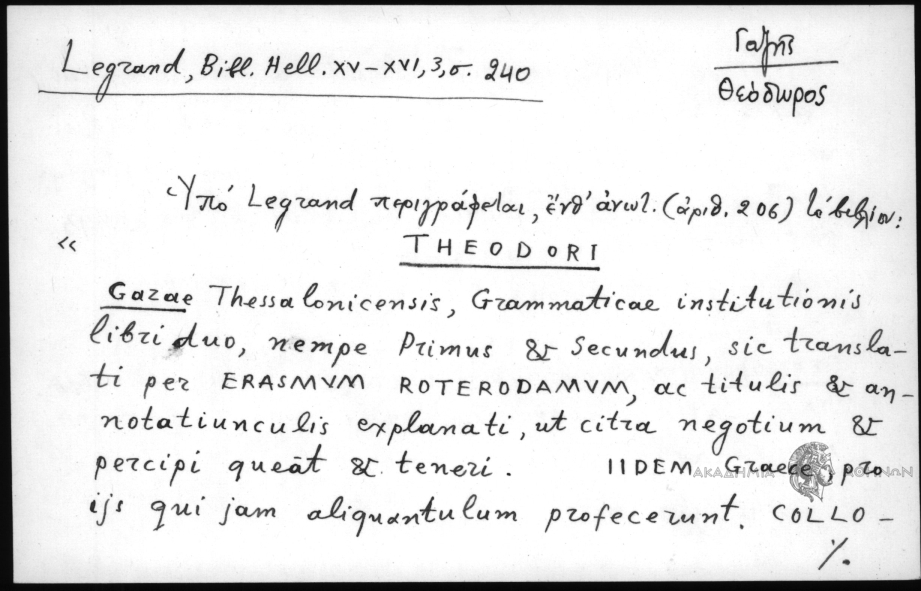 Legrand, Bibl. Hell. XV-XVI, 3, σ. 240
Γαζῆς
Θεόδωρος
Ὑπό Legrand περιγράφεται, ἔνθ' ἀνωτ. (ἀριθ. 206) τό βιβλίον:
«
THEODORI
Gazae Thessalonicensis, Grammaticae institutionis
libri duo, nempe Primus & Secundus, sic transla-
ti per ERASMVM ROTERODAMVM, ac titulis & an-
notatiunculis explanati, ut citra negotium &
percipi queāt & teneri. IIDEM Graece, pro
ijs qui jam aliquantulum profecerunt. COLLO-
ΑΚΑΔΗΜΙΑ ΑΘΗΝΩΝ
./.